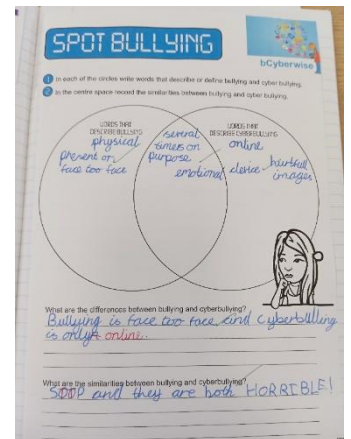 SPOT BULLYING
bCyberwise
1 In each of the circles write words that describe or define bullying and cyber bullying.
2 In the centre space record the similarities between bullying and cyber bullying.
WORDS THAT
DESCRIBE BULLYING
physical
present or
face too face
several
times on
purpose
emotional
WORDS THAT
DESCRIBE CYBERBULLYING
online
device
hurtful
images
What are the differences between bullying and cyberbullying?
Bullying is face too face and cyberbulling
is only online.
What are the similarities between bullying and cyberbullying?
STOP and they are both HORRIBLE!